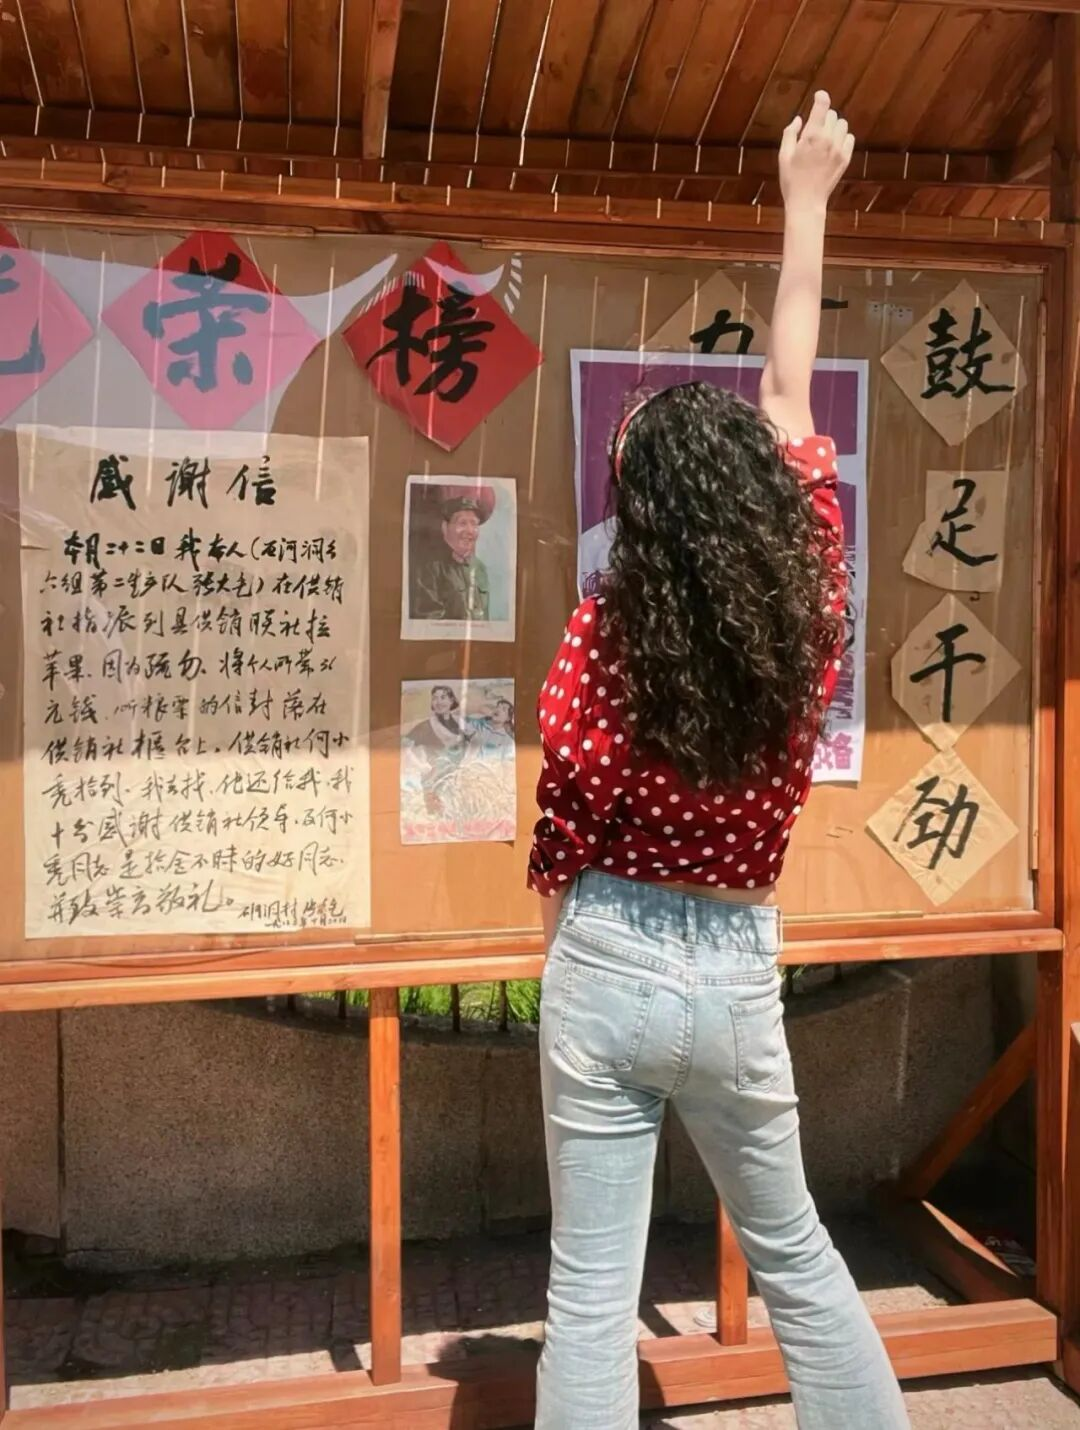 光荣榜
力
鼓
足
干
劲
感谢信
本月二十二日我本人(石河洞乡
六组第二生产队张大毛)在供销
社指派到县供销联社拉
苹果、因为疏勿、将个人所带36
元钱、所粮票的信封落在
供销社柜台上。供销社何小
亮拾到、我去找、他还给我、我
十分感谢供销社领导、及何小
亮同志是拾金不昧的好同志、
并致崇高敬礼。